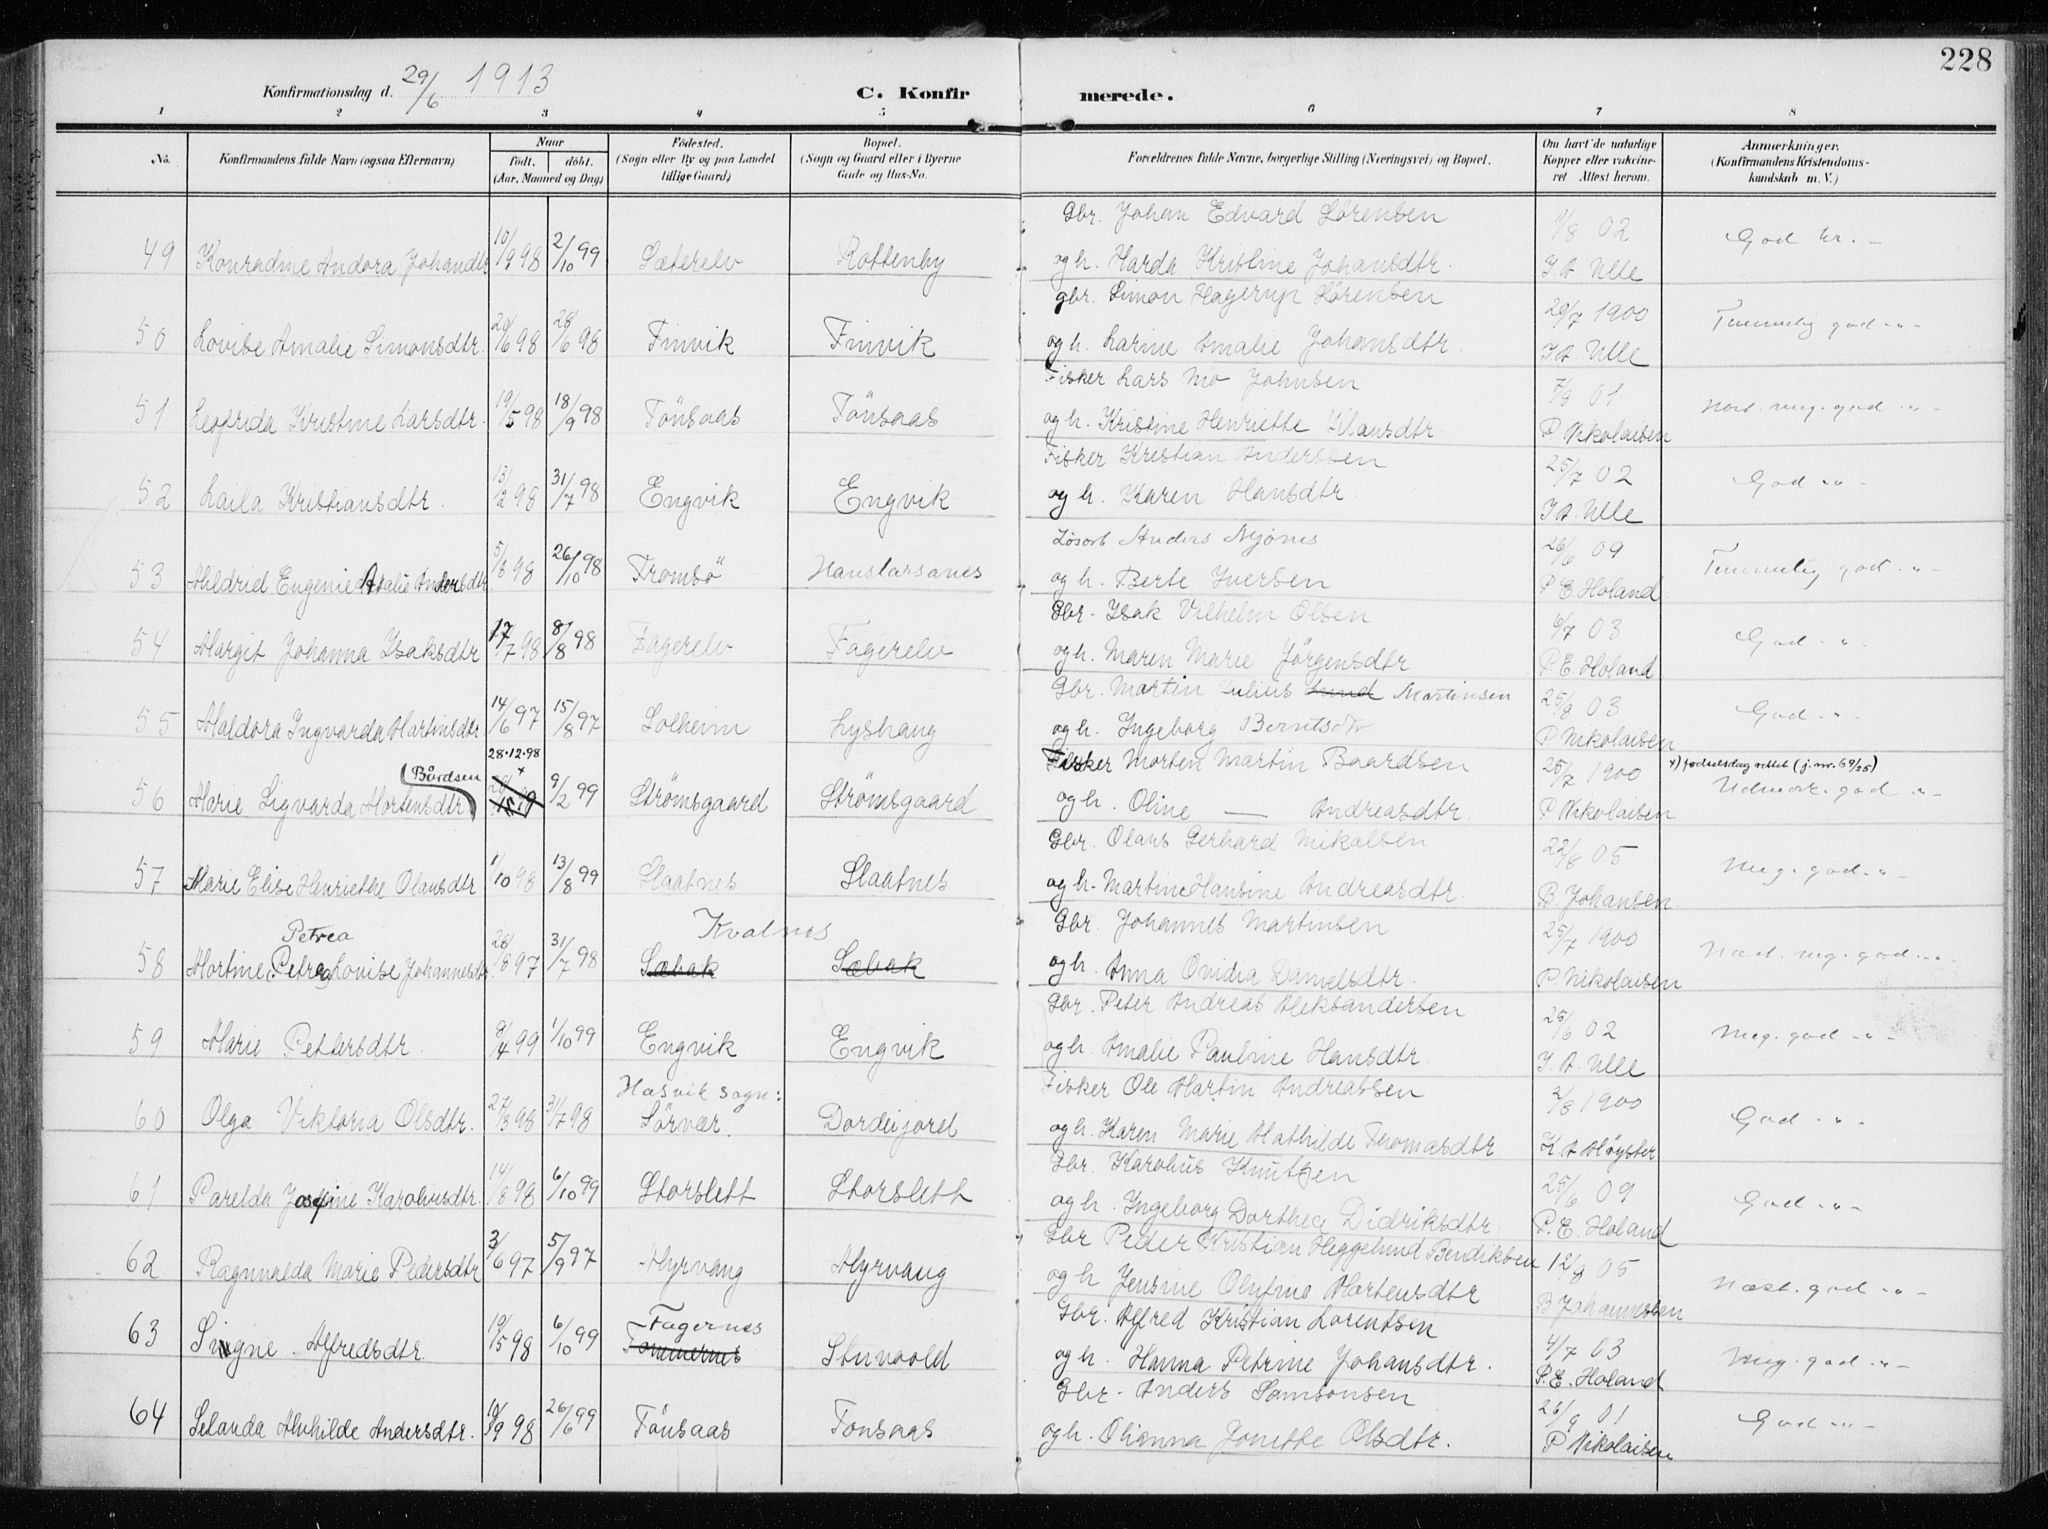 228
Konfirmationsdag d. 29/6 1913
C. Konfirmerede.
1 2 3 4 5 6 7 8
No. Konfirmandens fulde Navn (ogsaa Efternavn) Naar født, døbt. (Aar, Maaned og Dag) Fødested. (Sogn eller By og paa Landet tillige Gaard) Bopæl. (Sogn og Gaard eller i Byerne Gade og Hus-No. Forældrenes fulde Navne, borgerlige Stilling (Næringsvei) og Bopæl. Om havt de naturlige Kopper eller vakcineret Attest herom. Anmærkninger. (Konfirmandens Kristendomskundskab m. V.)
49 Konradine Andora Johandtr 10/9 98 2/10 99 Sæterelv Rottenby Gbr. Johan Edvard Sørensen 11/8 02 God kr. -
og h. Harda Kristine Johansdtr. I. A. Ulle
50 Lovise Amalie Simonsdtr. 20/6 98 28/6 98 Finvik Finvik gbr. Simon Hagerup Sørensen 20/7 1900 Temmelig god -"-
og h. Larine Amalie Johansdtr. I A. Ulle
51 Leofrida Kristine Larsdtr. 19/5 98 18/9 98 Tönsaas Tönsaas Fisker Lars Mo Johnsen 7/9 01 Næst. meg. god -"-
og h. Kristine Henriette Klausdtr. P Nikolaisen
52 Laila Kristiansdtr. 13/2 98 31/7 98 Engvik Engvik Fisker Kristian Anderssen 25/7 02 God -"-
og h. Karen Hansdtr. I A. Ulle
53 Meldrid Engenie Atalie Andersdtr. 5/8 98 26/10 98 Tromsö Hanslarsanes Løsarb Anders Mjønes 26/6 09 Temmelig god -"-
og h. Berte Iversen P. E. Holand
54 Margit Johanna Isaksdtr 17/7 98 8/8 98 Fagerelv Fagerelv Gbr. Isak Vilhelm Olsen 6/7 03 God -"-
og h. Maren Marie Jörgensdtr P. E. Holand
55 Haldora Ingvarda Martinsdtr 14/6 97 15/8 97 Solheim Lyshaug Gbr. Martin Julius Lund Martinsen 25/8 03 God -"-
og h. Ingeborg Berntsdtr P Nikolaisen
28.12.98
x
56 Marie Sigvarda Mortensdtr Bårdsen 9/2 99 Strömsgaard Strömsgaard Fisker Morten Martin Baardsen 25/7 1900 x) fødselsdag rettet (j.nr. 69/35)
og h. Oline — Andreasdtr. P Nikolaisen Udmerk. god -"-
57 Marie Elise Henriethe Olausdtr 1/10 98 13/8 99 Slaatnes Slaatnes Gbr. Olaus Gerhard Mikalsen 22/8 05 Meg. god -"-
og h. Martine Hansine Andreasdtr. B. Johansen
58 Mortine Petrea Louise Johannesdtr. Petrea 28/8 97 31/7 98 Kvalnes Sæbak Sæbak Gbr. Johannes Martinsen 25/7 1900 Næst. meg. god -"-
og h. Anna Ovidia Danielsdtr. P. Nikolaisen
59 Marie Pettersdtr. 9/4 99 1/10 99 Engvik Engvik Gbr. Peter Andreas Aleksandersen 25/6 02 Meg. god -"-
og h. Amalie Pauline Hansdtr. I. A. Ulle
60 Olga Viktoria Olsdtr. 27/3 98 31/7 98 Hasvik sogn: Sörvær. Dordeijord Fisker Ole Martin Andreassen 2/8 1900 God -"-
og h. Karen Marie Mathilde Thomasdtr K A Höyster
61 Parelda Josefine Karoliusdtr. 14/8 98 6/10 99 Storslett Storslett Gbr. Karolius Knutsen 25/6 09 God -"-
og h. Ingeborg Dorthea Didriksdtr. P. E. Holand
62 Ragnvalda Marie Pedersdtr 3/6 97 5/9 97 Myrvang Myrvang Gbr Peder Kristian Heggelund Bendiksen 12/8 05 Næst. god -"-
og h Jensine Olufine Mortensdtr B Johannessen
63 Signe Alfredsdtr. 19/5 98 6/10 99 Fagernes Tommernes Stuvoold Gbr. Alfred Kristian Lorentsen 4/7 03 Meg. god -"-
og h. Hanna Petrine Johansdtr. P. E. Holand
64 Selanda Alvhilde Andersdtr. 10/9 98 26/6 99 Tönsaas Tonsaas Gbr. Anders Samsonsen 26/9 01 God -"-
og h. Olianna Jonette Olsdtr. P Nikolaisen